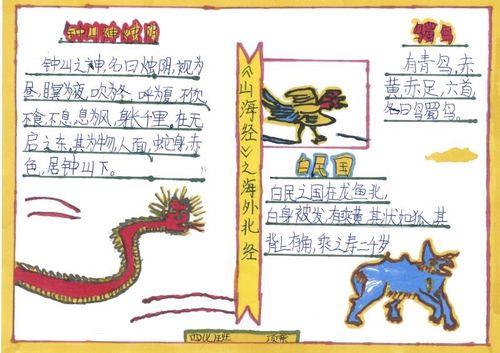 钟山神烛阴
钟山之神,名曰烛阴,视为
昼,瞑为夜,吹为冬,呼为夏,不饮
不食不息,息为风,身长千里,在无
启之东,其为物,人面,蛇身,赤
色,居钟山下。
《山海经》之海外北经
有青鸟,赤
黄赤足,六首,
名曰鸀鸟。
白民国
白民之国在龙鱼北,
白身被发,有乘黄,其状如狐,其
背上有角,乘之寿二千岁